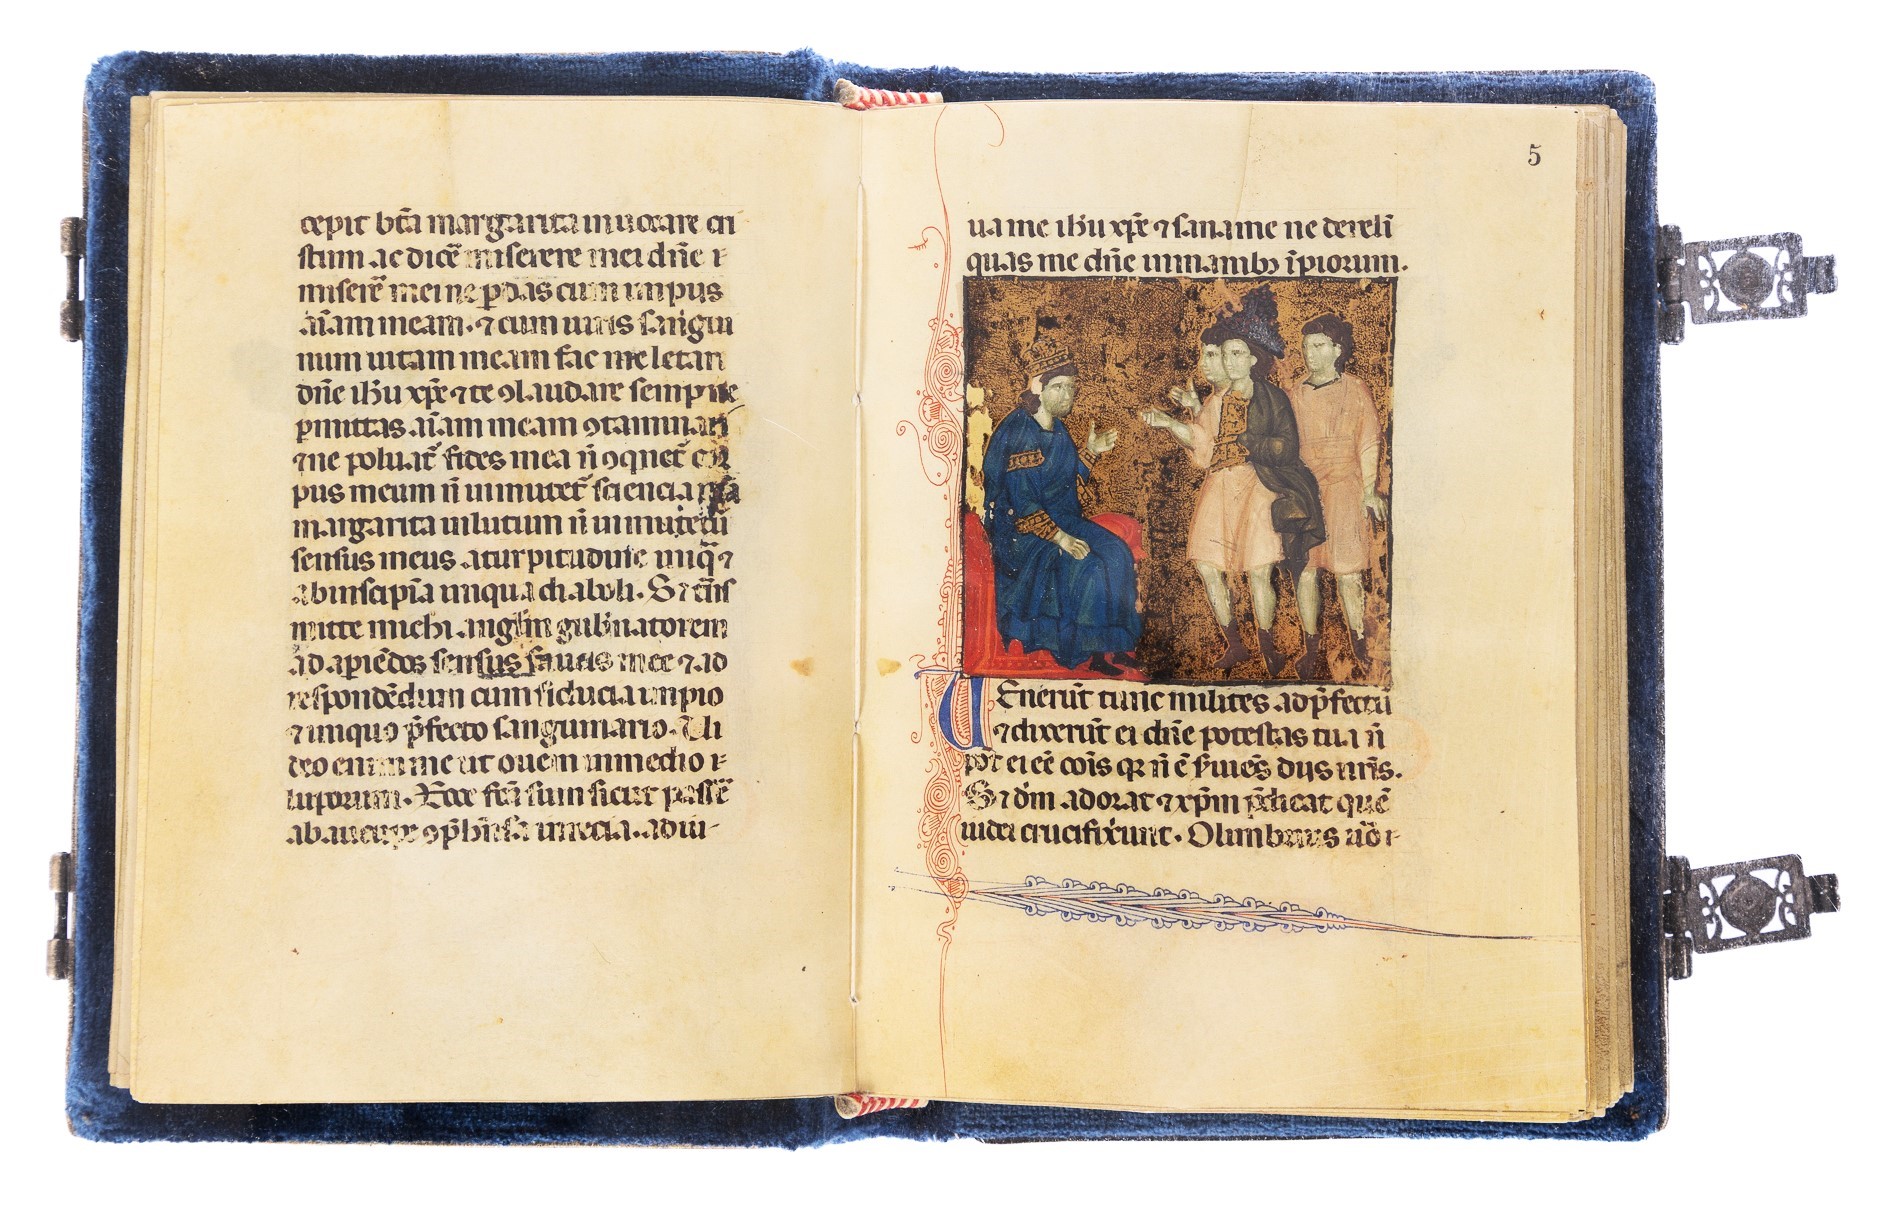 cepit bt̄a margarita inuocare cri
stum ac dicē miserere mei dn̄e ⁊
miserē mei ne ꝑdas cum impiis
aīam meam. ⁊ cum uiris sangui
num uitam meam fac me letari
dn̄e ih̄u xp̄e ⁊ te ꝯlaudare semp ne
ꝑmittas aīam meam ꝯtaminari
⁊ ne poluat᷑ fides mea n̄ ꝯq̇net᷑ cor
pus meum n̄ inmutet᷑ sciencia
margarita in lutum n̄ inmutetur
sensus meus a turpitudine iniq̄ ⁊
ab insipīa iniqua diaboli. S⁊
mitte michi angłm gub̄natorem
ad apiēdos sensus
respondēdum cum fiducia impio
⁊ iniquo p̄fecto sanguinario. Ui
deo enim me ut ouem in medio ⁊
luporum. Ecce fcā sum sicut passē
ab aucupe ꝯp̄hēnsa in recia. adui
5
ua me ih̄u xp̄e ⁊ sana me ne dereli
quas me dn̄e in manibꝫ īpiorum.
Uenerūt tunc milites ad p̄fectū
⁊ dixerūt ei dn̄e potestas tua n̄
pōt ei eē cōis qꝛ n̄ ē ẜuiēs diis nr̄is.
S⁊ dm̄ adorat ⁊ xp̄m p̄dicat quē
iudei crucifixerunt. Olimbrius